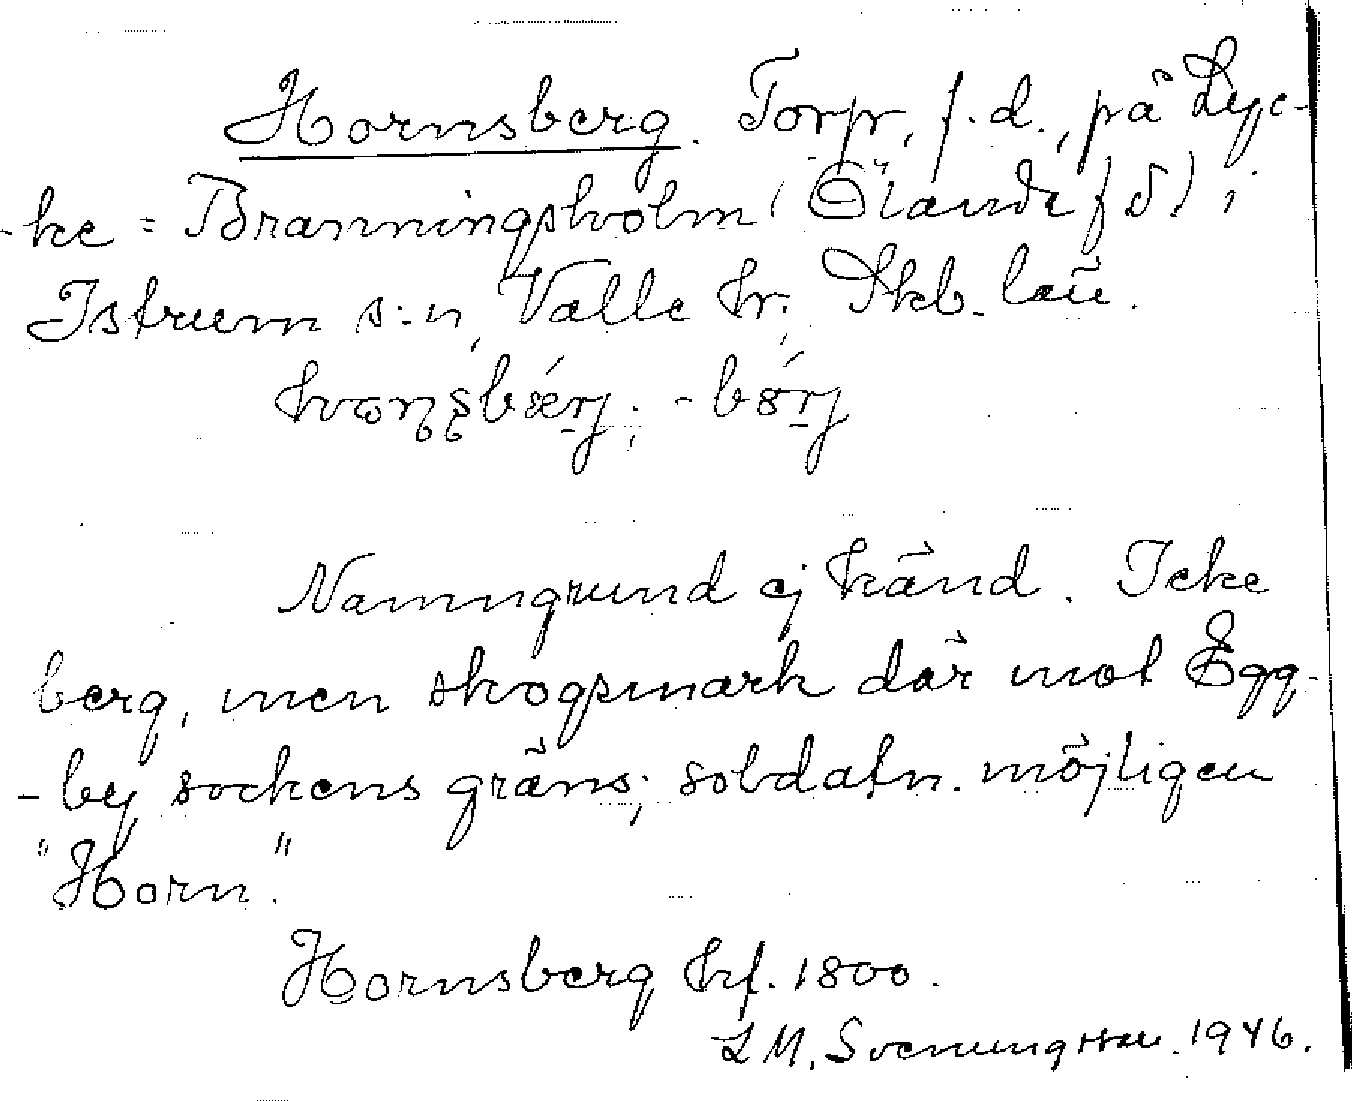 Hornsberg. Torpr, f. d., på Lyc-
-ke = Branningsholm (Ölanda fd) i
Istrum s:n, Valle hr, Skb. län.
-
Namngrund ej känd. Icke
berg, men skogsmark där mot Egg-
-by sockens gräns; soldatn. möjligen
"Horn".
Hornsberg hf. 1800.
L M. Svenungsson. 1946.